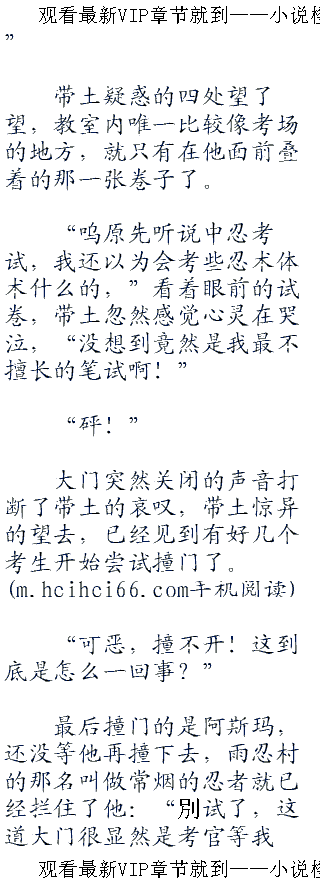 观看最新VIP章节就到——小说检
”
带土疑惑的四处望了
望，教室内唯一比较像考场
的地方，就只有在他面前叠
着的那一张卷子了。
“呜原先听说中忍考
试，我还以为会考些忍术体
术什么的，”看着眼前的试
卷，带土忽然感觉心灵在哭
泣，“没想到竟然是我最不
擅长的笔试啊！”
“砰！”
大门突然关闭的声音打
断了带土的哀叹，带土惊异
的望去，已经见到有好几个
考生开始尝试撞门了。
(m.hcihci66.com手机阅读)
“可恶，撞不开！这到
底是怎么一回事？”
最后撞门的是阿斯玛，
还没等他再撞下去，雨忍村
的那名叫做常烟的忍者就已
经拦住了他：“别试了，这
道大门很显然是考官等我
观看最新VIP章节就到——小说检